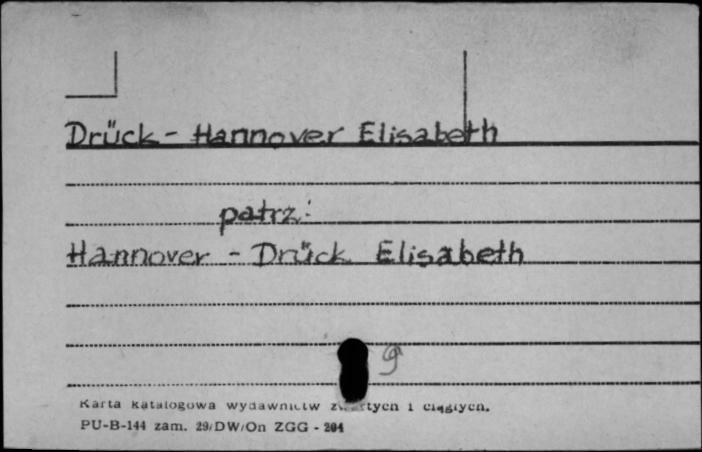 Drück - Hannover Elisabeth
patrz:
Hannover - Drück Elisabeth
g
Karta katalogowa wydawnictw zwartych i ciągłych.
PU-B-144 zam. 29/DW/On ZGG - 204